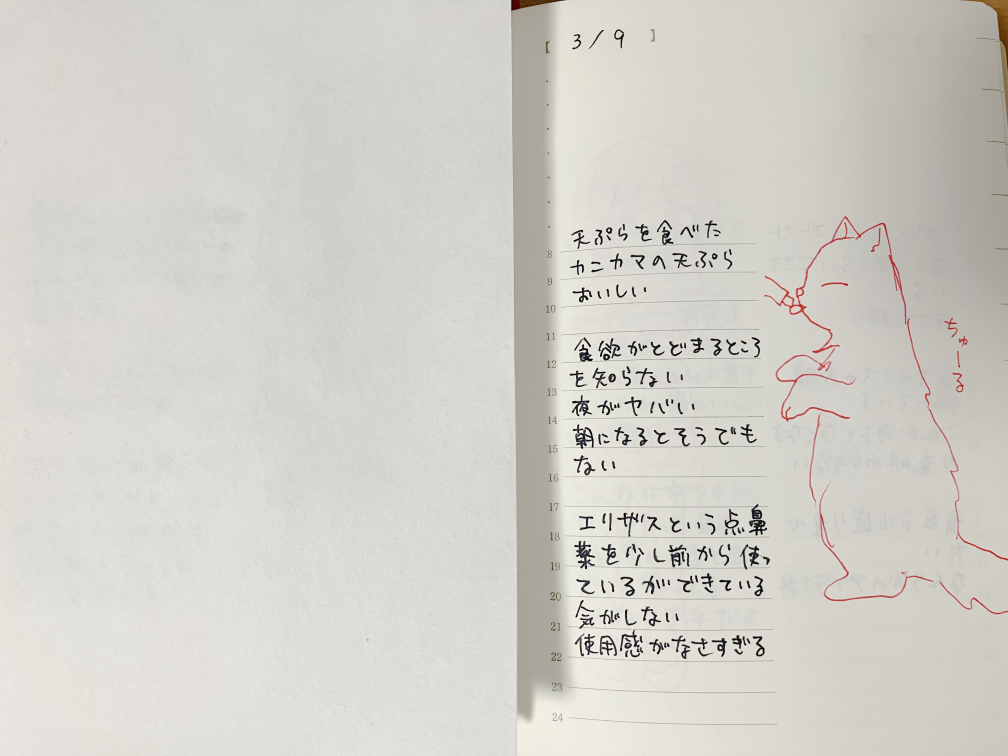 【 3/9 】
天ぷらを食べた
カニカマの天ぷら
おいしい
食欲がとどまるところ
を知らない
夜がヤバい
朝になるとそうでも
ない
エリザスという点鼻
薬を少し前から使っ
ているができている
気がしない
使用感がなさすぎる
ちゅーる
8
9
10
11
12
13
14
15
16
17
18
19
20
21
22
23
24